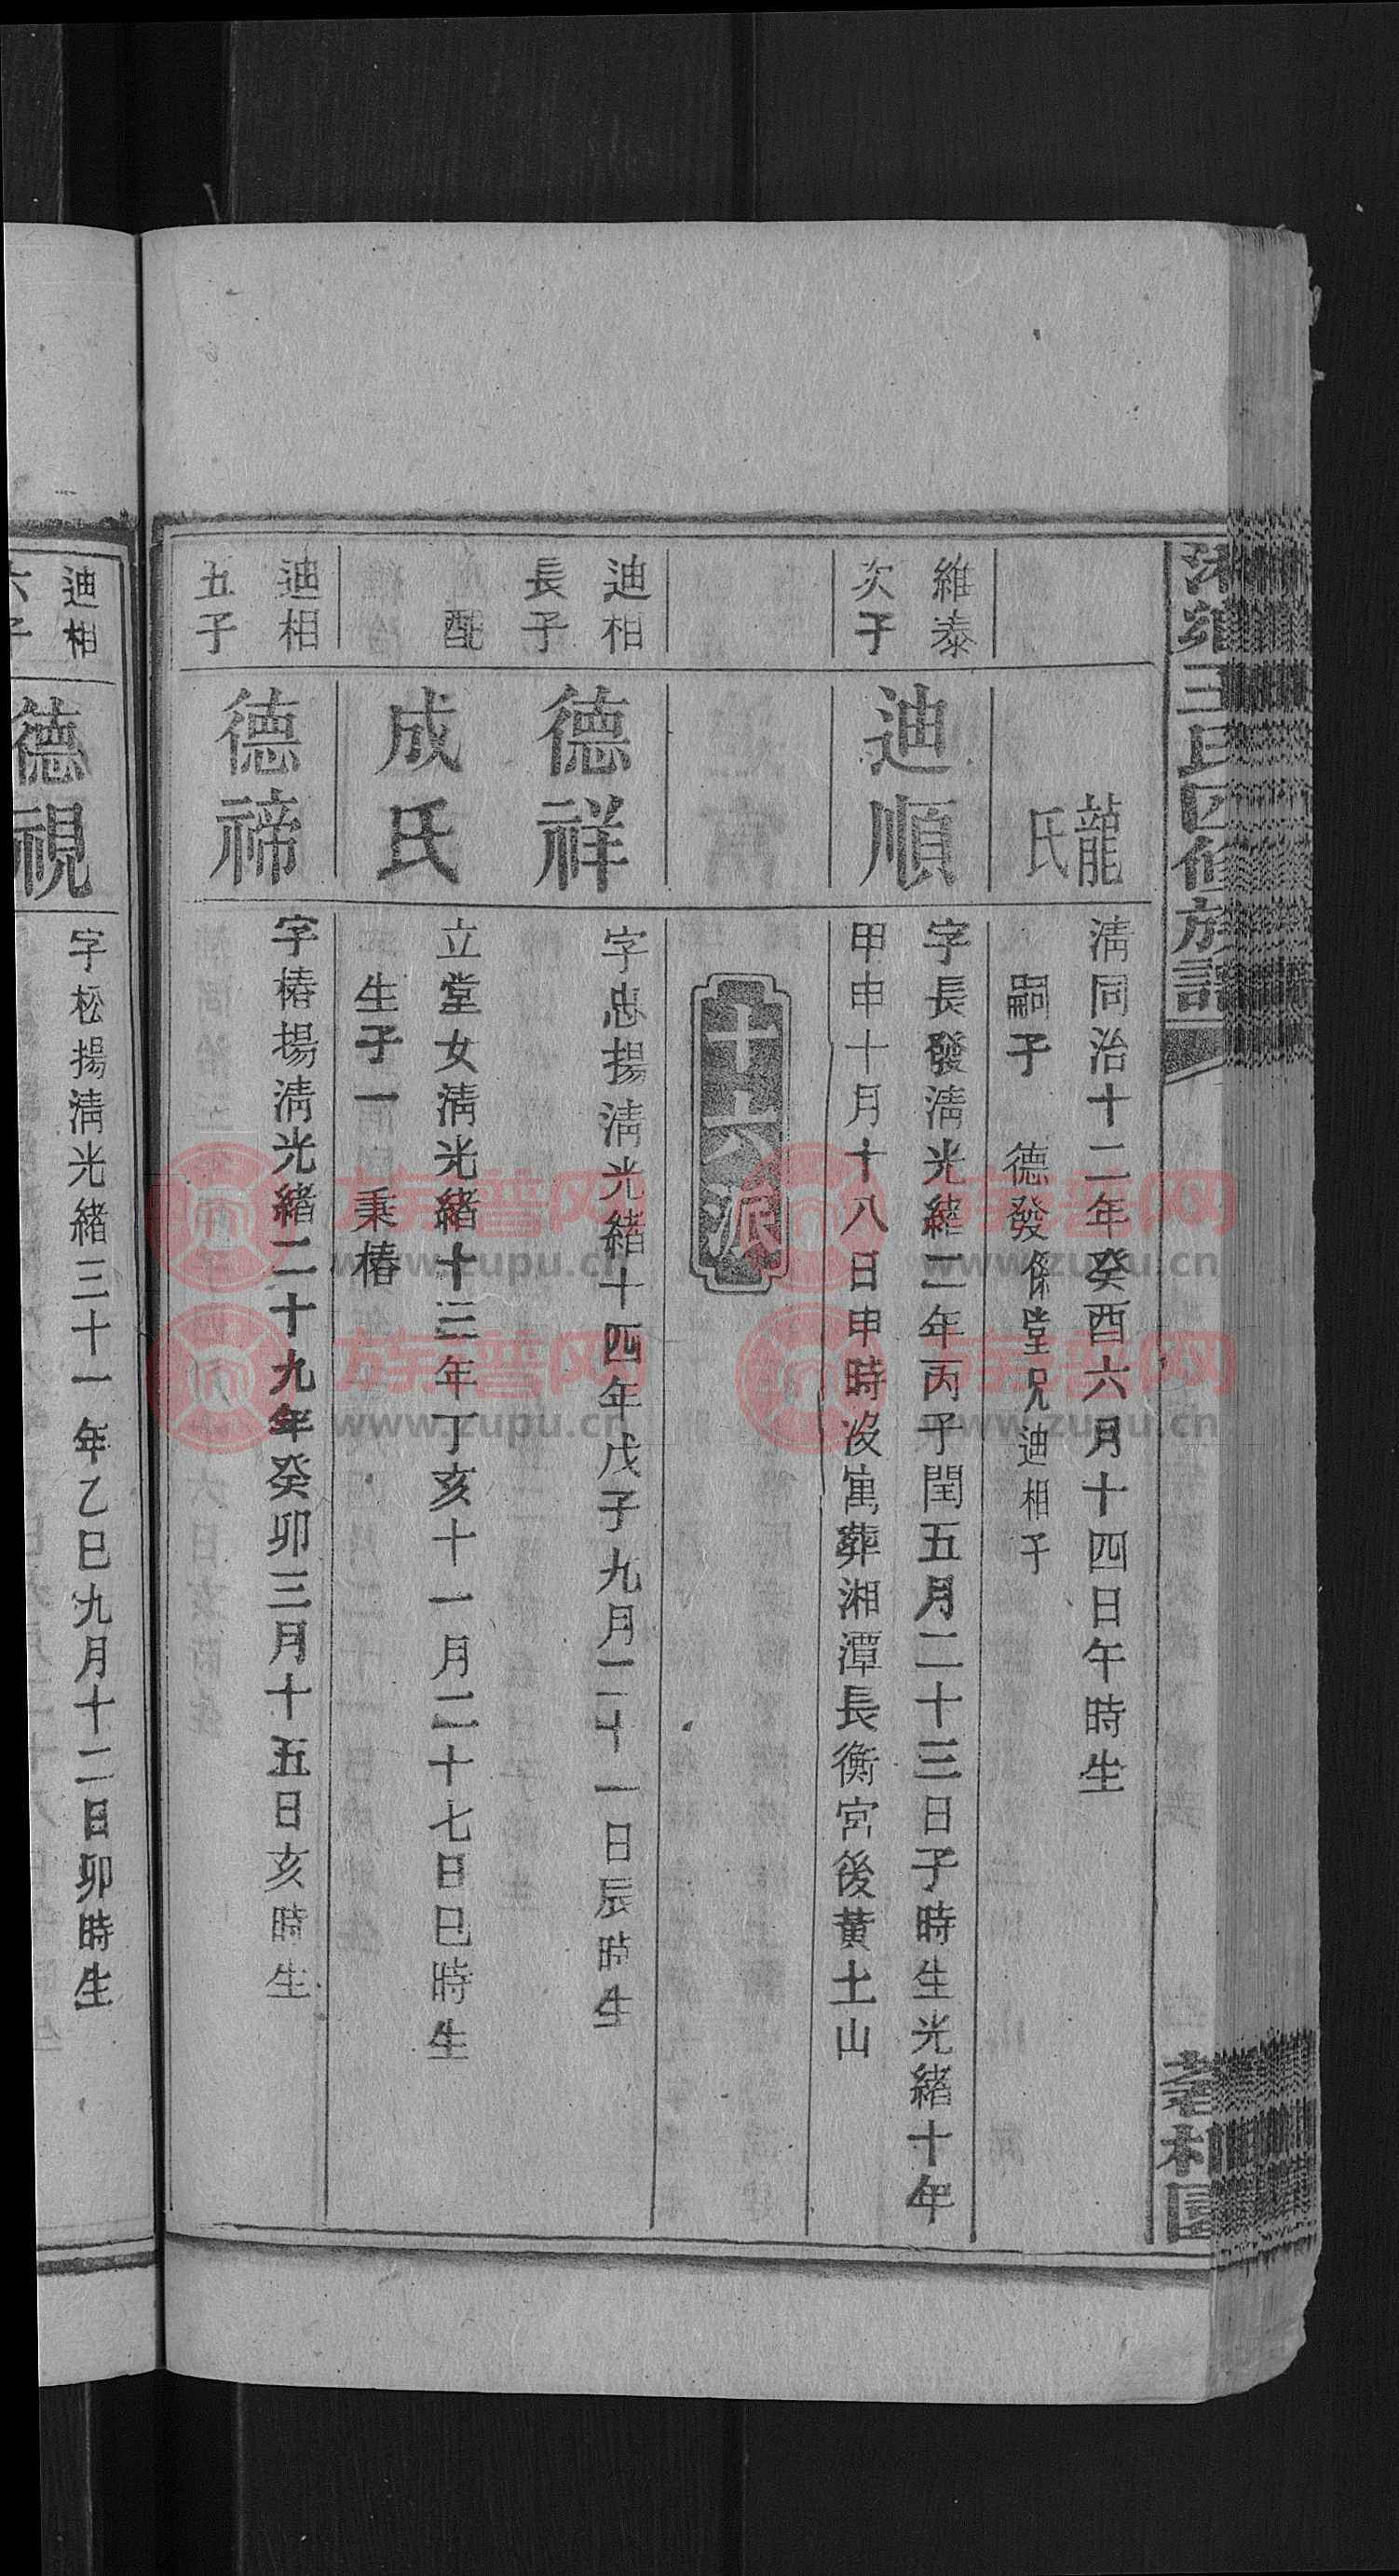 王氏四修族譜
老杉園
龍氏
清同治十二年癸酉六月十四日午時生
嗣子 德發係堂兄迪相子
維泰
次子
迪順
字長發清光緒二年丙子閏五月二十三日子時生光緒十年
甲申十月十八日申時沒寓葬湘潭長衡宮後黃土山
十六派
迪相
長子
德祥
字忠揚清光緒十四年戊子九月二十一日辰時生
配
成氏
立堂女清光緒十三年丁亥十一月二十七日巳時生
生子一 秉椿
迪相
五子
德禘
字椿揚清光緒二十九年癸卯三月十五日亥時生
迪相
六子
德視
字松揚清光緒三十一年乙巳九月十二日卯時生
族譜网
www.zupu.cn
族譜网
www.zupu.cn
族譜网
www.zupu.cn
族譜网
www.zupu.cn